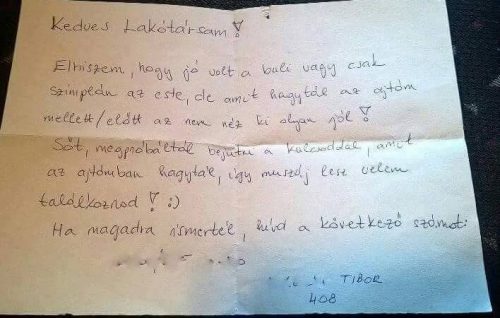 Kedves Lakótársam!
Elhiszem, hogy jó volt a buli vagy csak
szimplán az este, de amit hagytál az ajtóm
mellett/előtt az nem néz ki olyan jól!
Sőt, megpróbáltál bejutni a kulcsoddal, amit
az ajtómban hagytál, így muszáj lesz velem
találkoznod! :)
Ha magadra ismertél, hívd a következő számot:
TIBOR
408